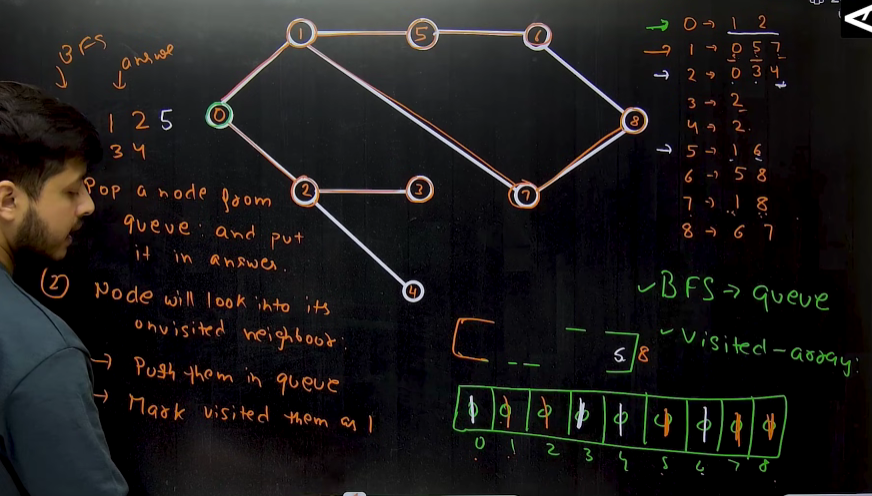 BFS
answer
1 2 5
3 4
Pop a node from
queue and put
it in answer.
(2) Node will look into its
unvisited neighbour.
→ Push them in queue
→ Mark visited them as 1
0
1
5
6
8
2
3
7
4
→ 0 → 1 2
→ 1 → 0 5 7
→ 2 → 0 3 4
3 → 2
4 → 2
→ 5 → 1 6
6 → 5 8
7 → 1 8
8 → 6 7
✓BFS → queue
✓Visited-array:
8
0 1 2 3 4 5 6 7 8